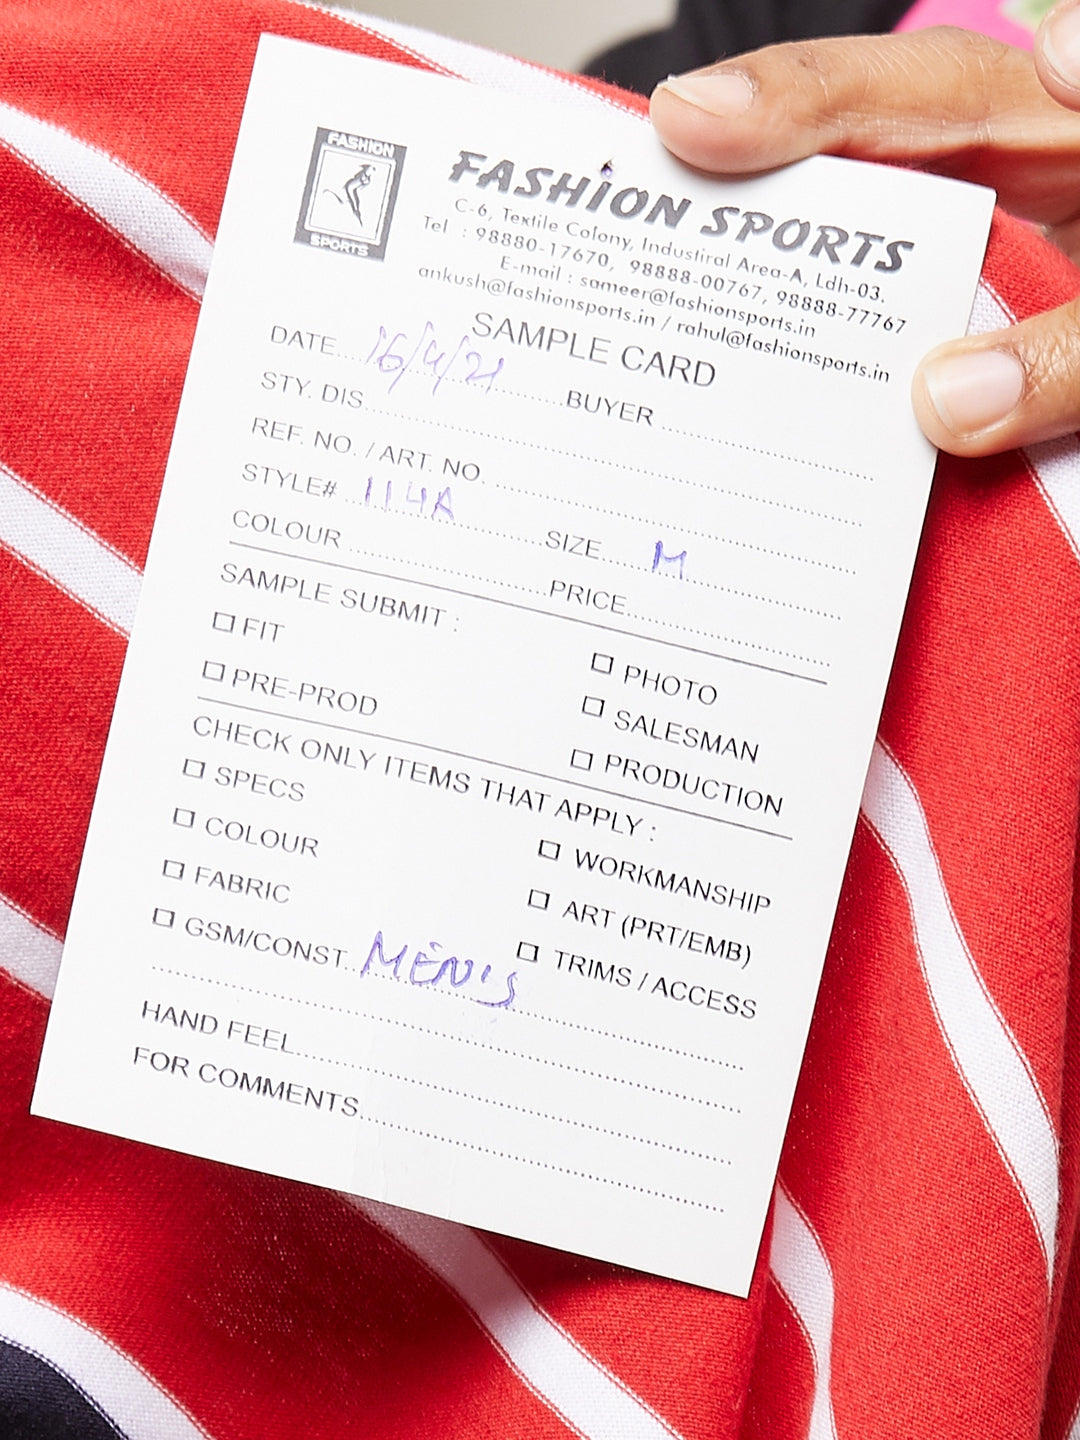 FASHION
SPORTS
FASHION SPORTS
C-6, Textile Colony, Industiral Area-A, Ldh-03.
Tel : 98880-17670, 98888-00767, 98888-77767
E-mail : sameer@fashionsports.in
ankush@fashionsports.in / rahul@fashionsports.in
SAMPLE CARD
DATE....16/4/21..........BUYER ..............................
STY. DIS..............................
REF. NO. / ART. NO. ..............................
STYLE# ..114A..........SIZE....M..............
COLOUR ....................PRICE....................
SAMPLE SUBMIT :
☐ FIT ☐ PHOTO
☐ PRE-PROD ☐ SALESMAN
☐ PRODUCTION
CHECK ONLY ITEMS THAT APPLY :
☐ SPECS ☐ WORKMANSHIP
☐ COLOUR ☐ ART (PRT/EMB)
☐ FABRIC ☐ TRIMS / ACCESS
☐ GSM/CONST..MEN'S....................
HAND FEEL..............................
FOR COMMENTS..............................